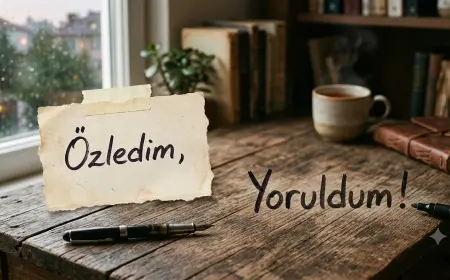 Özledim,
Yoruldum!